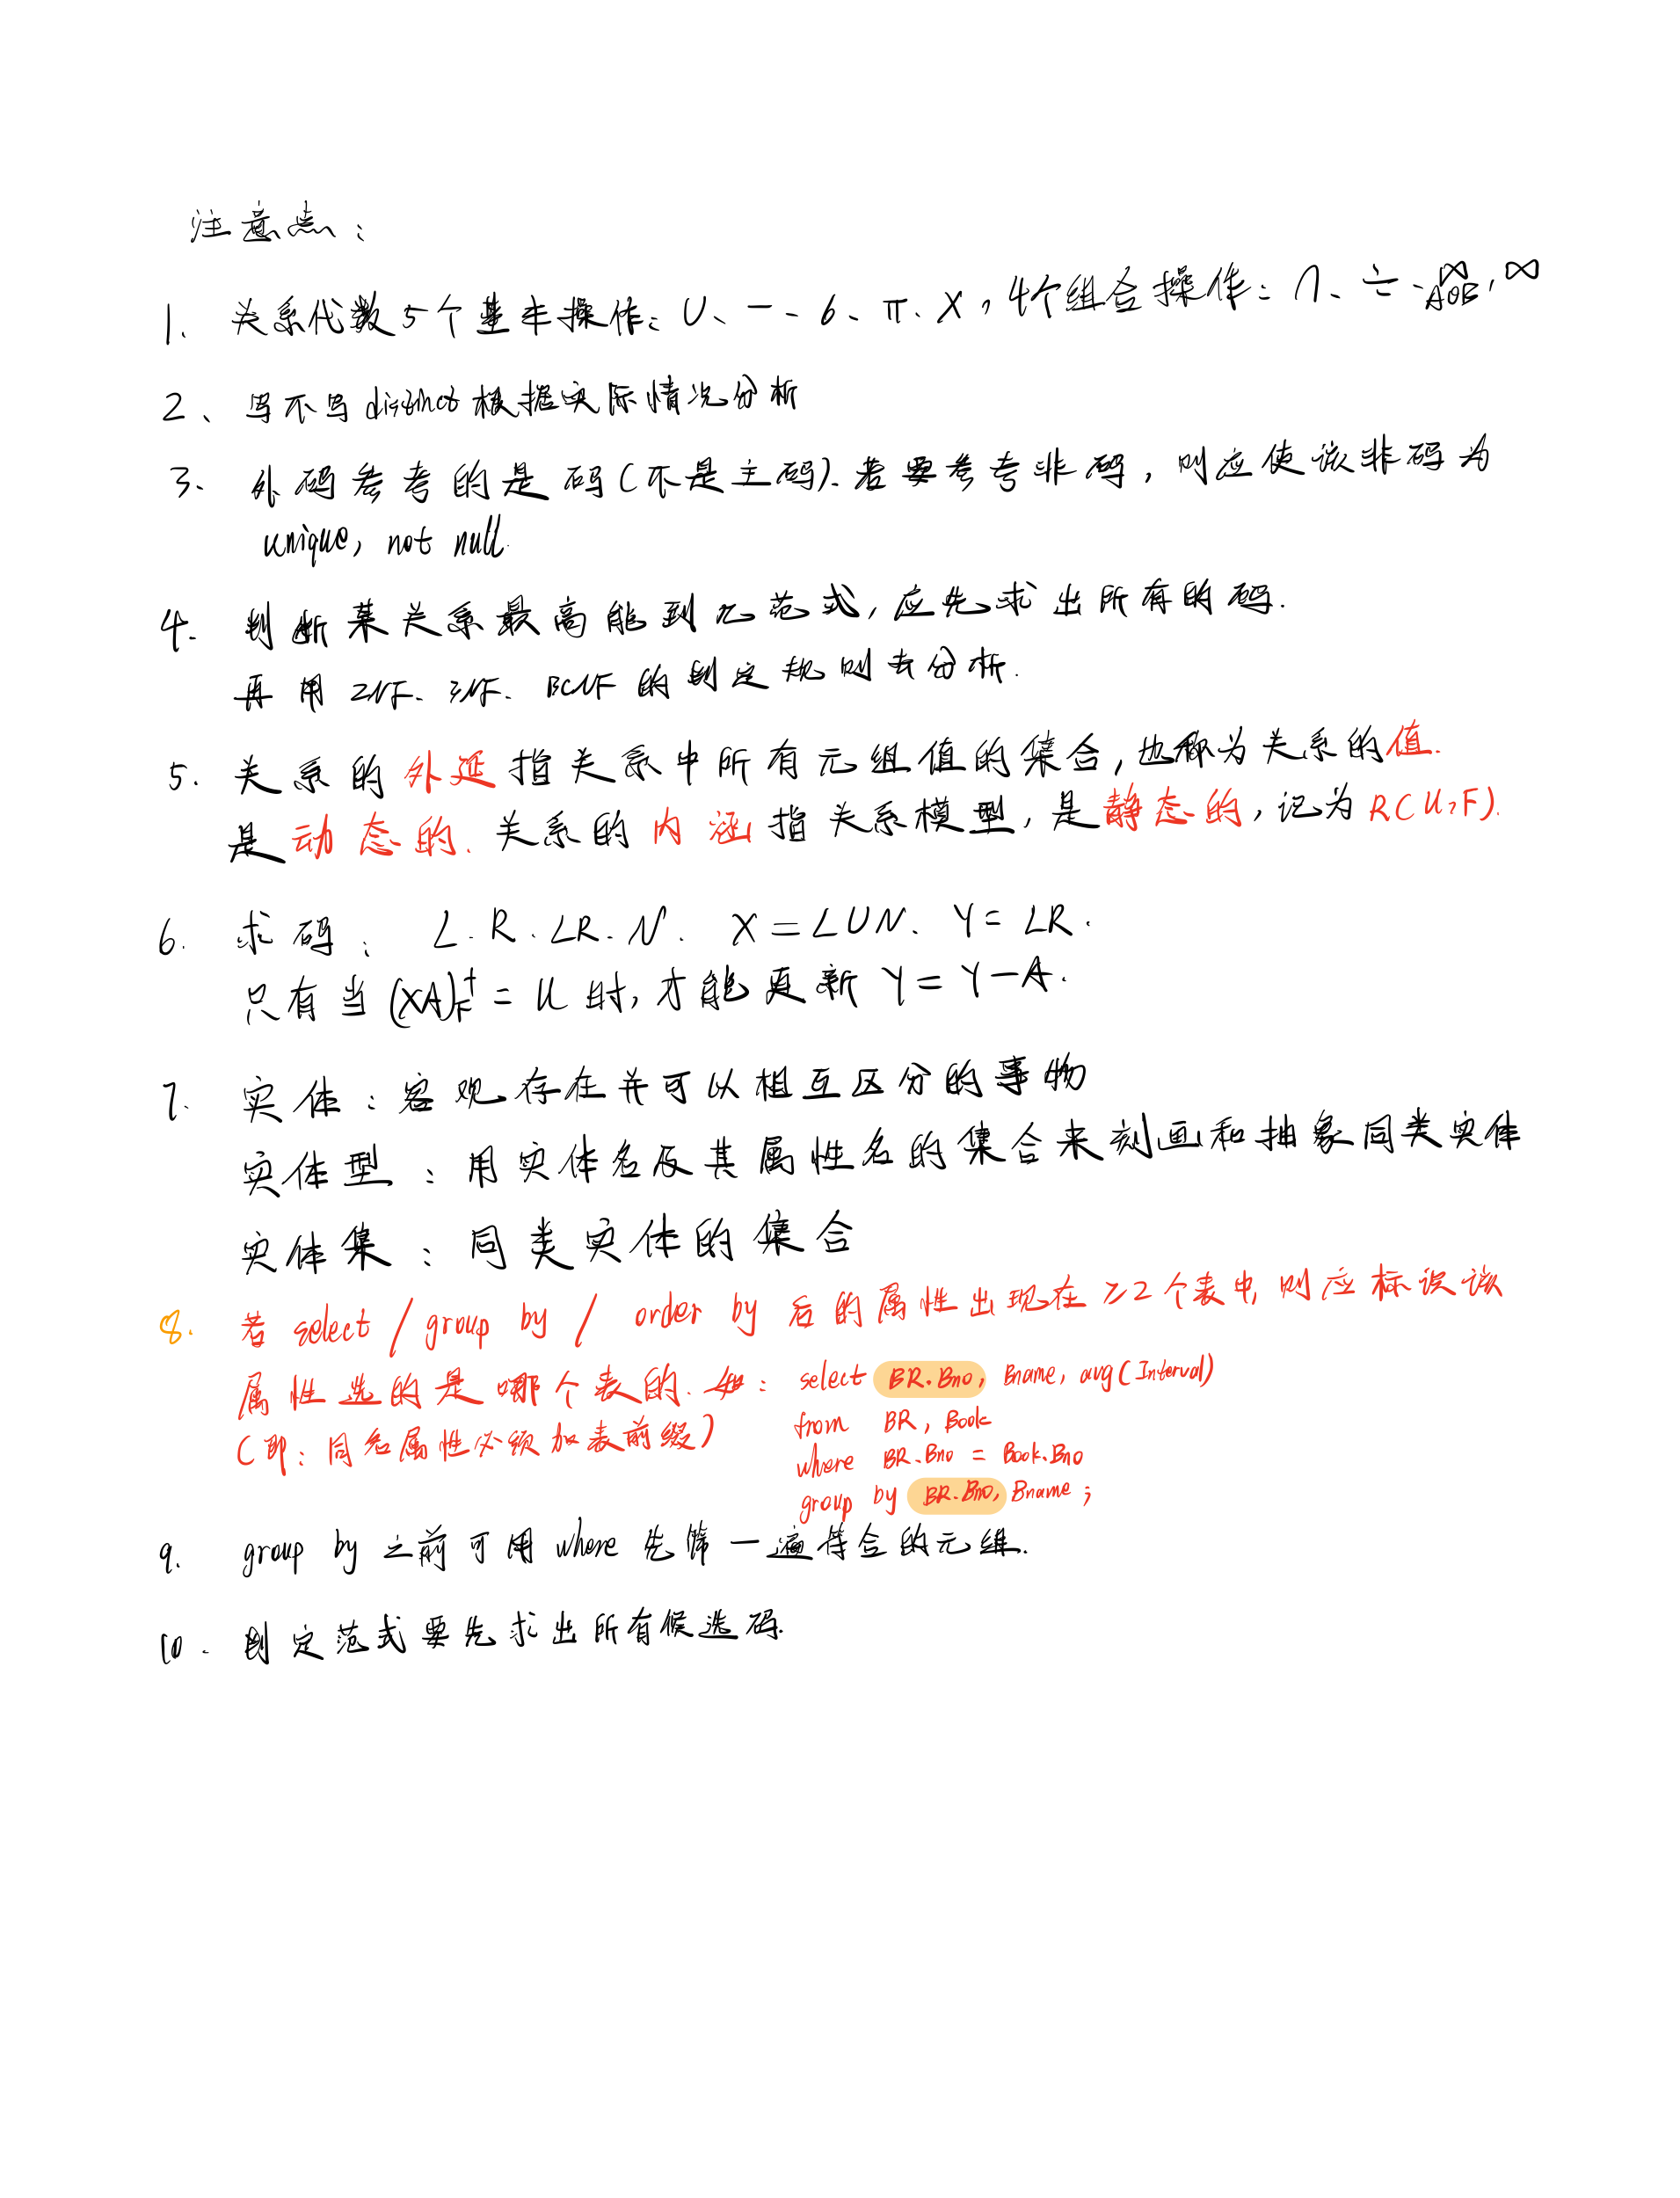 注意点：
1. 关系代数5个基本操作：∪、－、σ、π、×，4个组合操作：∩、÷、⋈AθB，⋈
2、写不写distinct根据实际情况分析
3. 外码参考的是码(不是主码).若要参考非码，则应使该非码为
unique, not null.
4. 判断某关系最高能到几范式，应先求出所有的码.
再用2NF、3NF、BCNF的判定规则去分析.
5. 关系的外延指关系中所有元组值的集合，也称为关系的值.
是动态的. 关系的内涵指关系模型，是静态的，记为R(U,F).
6. 求码： L. R. LR. N. X=L∪N. Y=LR.
只有当(XA)F⁺=U时，才能更新Y=Y-A.
7. 实体：客观存在并可以相互区分的事物
实体型：用实体名及其属性名的集合来刻画和抽象同类实体
实体集：同类实体的集合
8. 若select / group by / order by 后的属性出现在≥2个表中,则应标识该
属性选的是哪个表的.如：
(即：同名属性必须加表前缀)
select BR.Bno, Bname, avg(Interval)
from BR, Book
where BR.Bno = Book.Bno
group by BR.Bno, Bname;
9. group by 之前可用where先筛一遍符合的元组.
10. 判定范式要先求出所有候选码.